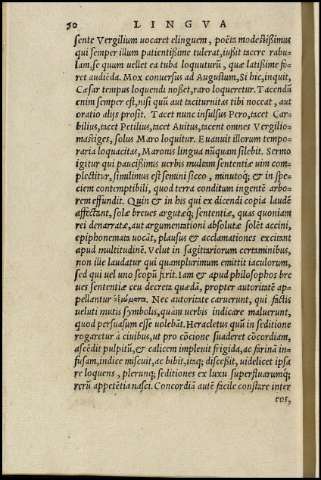 50 LINGVA
sente Vergilium uocaret elinguem, poëta modestißimus
qui semper illum patientißime tulerat, iußit tacere rabu-
lam, se quum uellet ea tuba loquuturū, quæ latißime fo-
ret audiēda. Mox conuersus ad Augustum, Si hic, inquit,
Cæsar tempus loquendi noßet, raro loqueretur. Tacendū
enim semper est, nisi quū aut taciturnitas tibi noceat, aut
oratio alijs prosit. Tacet nunc insulsus Pero, tacet Car-
bilius, tacet Petilius, tacet Auitus, tacent omnes Vergilio-
mastiges, solus Maro loquitur. Euanuit illorum tempo-
raria loquacitas, Maronis lingua nūquam silebit. Sermo
igitur qui paucißimis uerbis multam sententiæ uim com-
plectitur, simillimus est semini sicco, minutoq; & in spe-
ciem contemptibili, quod terra conditum ingentē arbo-
rem effundit. Quin & in his qui ex dicendi copia laudē
affectant, solæ breues argutæq; sententiæ, quas quoniam
rei denarratæ, aut argumentationi absolutæ solēt accini,
epiphonemata uocāt, plausus & acclamationes excitant
apud multitudinē. Velut in sagittariorum certaminibus,
non iiue laudatur qui quamplurimum emittit iaculorum,
sed qui uel uno scopū ferit. Iam & apud philosophos bre
ues sententiæ ceu decreta quædā, propter autoritatē ap-
pellantur ἀξιώματα. Nec autoritate caruerunt, qui factis
ueluti mutis symbolis, quam uerbis indicare maluerunt,
quod persuasum esse uolebāt. Heracletus quū in seditione
rogaretur à ciuibus, ut pro cōcione suaderet cōcordiam,
ascēdit pulpitū, & calicem impleuit frigida, ac farinā in-
fusam, indice miscuit, ac bibit, icq; discessit, uidelicet ipsa
re loquens, plerunq; seditiones ex luxu superfluarumq;
rerū appetētia nasci. Concordiā autē facile constare inter
eos,